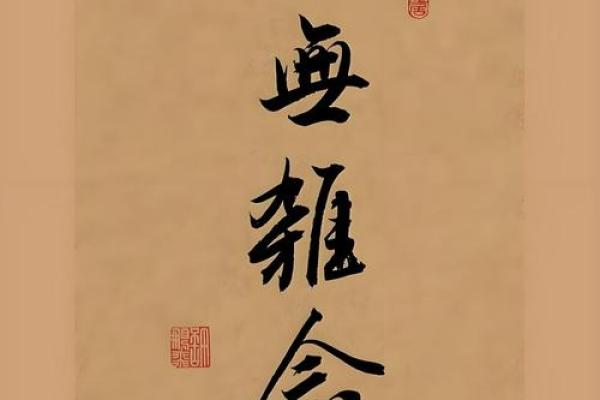 無
雜
念